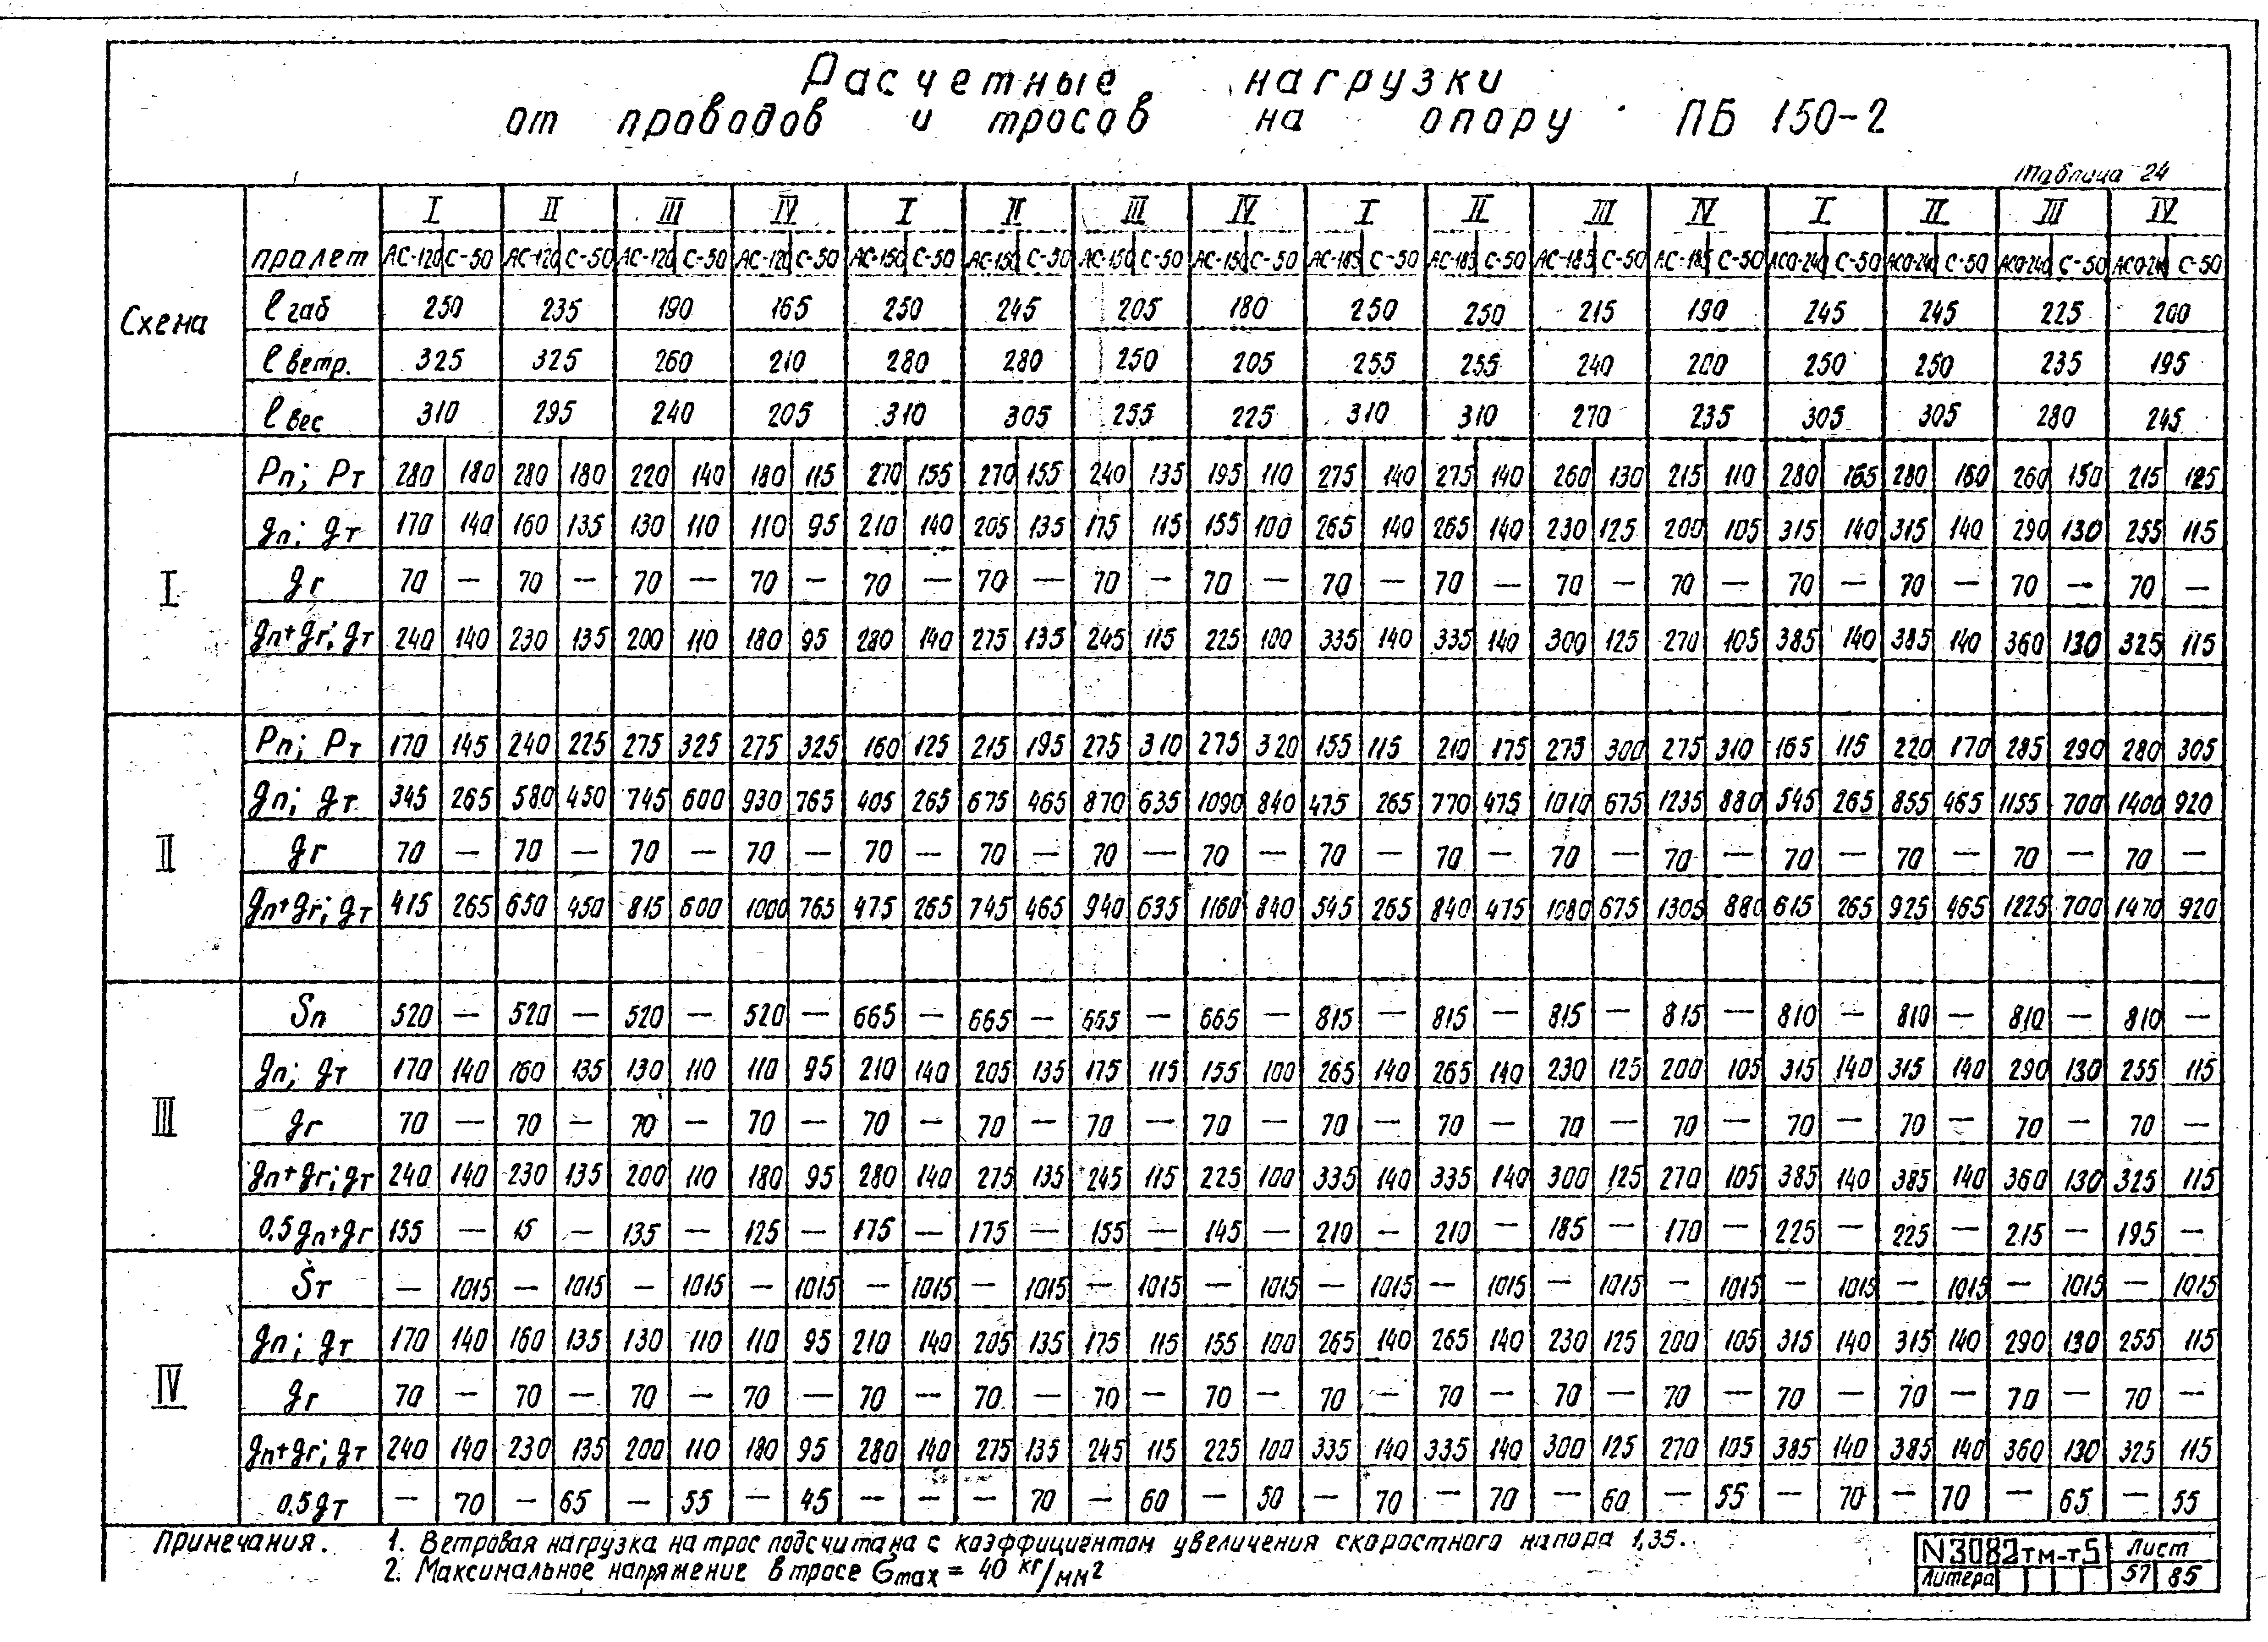 Расчетные нагрузки
от проводов и тросов на опору ПБ 150-2
Таблица 24
I II III IV I II III IV I II III IV I II III IV
пролет АС-120 С-50 АС-120 С-50 АС-120 С-50 АС-120 С-50 АС-150 С-50 АС-150 С-50 АС-150 С-50 АС-150 С-50 АС-185 С-50 АС-185 С-50 АС-185 С-50 АС-185 С-50 АСО-240 С-50 АСО-240 С-50 АСО-240 С-50 АСО-240 С-50
Схема
ℓ габ 250 235 190 165 250 245 205 180 250 250 215 190 245 245 225 200
ℓ ветр. 325 325 260 210 280 280 250 205 255 255 240 200 250 250 235 195
ℓ вес 310 295 240 205 310 305 255 225 310 310 270 235 305 305 280 245
I
Pп; Pт 280 180 280 180 220 140 180 115 270 155 270 155 240 135 195 110 275 140 275 140 260 130 215 110 280 165 280 160 260 150 215 125
gп; gт 170 140 160 135 130 110 110 95 210 140 205 135 175 115 155 100 265 140 265 140 230 125 200 105 315 140 315 140 290 130 255 115
gг 70 — 70 — 70 — 70 — 70 — 70 — 70 — 70 — 70 — 70 — 70 — 70 — 70 — 70 — 70 — 70 —
gп+gг; gт 240 140 230 135 200 110 180 95 280 140 275 135 245 115 225 100 335 140 335 140 300 125 270 105 385 140 385 140 360 130 325 115
II
Pп; Pт 170 145 240 225 275 325 275 325 160 125 215 195 275 310 275 320 155 115 210 175 275 300 275 310 165 115 220 170 285 290 280 305
gп; gт 345 265 580 450 745 600 930 765 405 265 675 465 870 635 1090 840 475 265 770 475 1010 675 1235 880 545 265 855 465 1155 700 1400 920
gг 70 — 70 — 70 — 70 — 70 — 70 — 70 — 70 — 70 — 70 — 70 — 70 — 70 — 70 — 70 — 70 —
gп+gг; gт 415 265 650 450 815 600 1000 765 475 265 745 465 940 635 1160 840 545 265 840 475 1080 675 1305 880 615 265 925 465 1225 700 1470 920
III
Sп 520 — 520 — 520 — 520 — 665 — 665 — 665 — 665 — 815 — 815 — 815 — 815 — 810 — 810 — 810 — 810 —
gп; gт 170 140 160 135 130 110 110 95 210 140 205 135 175 115 155 100 265 140 265 140 230 125 200 105 315 140 315 140 290 130 255 115
gг 70 — 70 — 70 — 70 — 70 — 70 — 70 — 70 — 70 — 70 — 70 — 70 — 70 — 70 — 70 — 70 —
gп+gг; gт 240 140 230 135 200 110 180 95 280 140 275 135 245 115 225 100 335 140 335 140 300 125 270 105 385 140 385 140 360 130 325 115
0.5gп+gг 155 — 15 — 135 — 125 — 175 — 175 — 155 — 145 — 210 — 210 — 185 — 170 — 225 — 225 — 215 — 195 —
IV
Sт — 1015 — 1015 — 1015 — 1015 — 1015 — 1015 — 1015 — 1015 — 1015 — 1015 — 1015 — 1015 — 1015 — 1015 — 1015 — 1015
gп; gт 170 140 160 135 130 110 110 95 210 140 205 135 175 115 155 100 265 140 265 140 230 125 200 105 315 140 315 140 290 130 255 115
gг 70 — 70 — 70 — 70 — 70 — 70 — 70 — 70 — 70 — 70 — 70 — 70 — 70 — 70 — 70 — 70 —
gп+gг; gт 240 140 230 135 200 110 180 95 280 140 275 135 245 115 225 100 335 140 335 140 300 125 270 105 385 140 385 140 360 130 325 115
0.5gт — 70 — 65 — 55 — 45 — — — 70 — 60 — 50 — 70 — 70 — 60 — 55 — 70 — 70 — 65 — 55
Примечания. 1. Ветровая нагрузка на трос подсчитана с коэффициентом увеличения скоростного напора 1,35.
2. Максимальное напряжение в тросе Gmax = 40 кг/мм²
N3082тм-т5 Лист
Литера 57 85